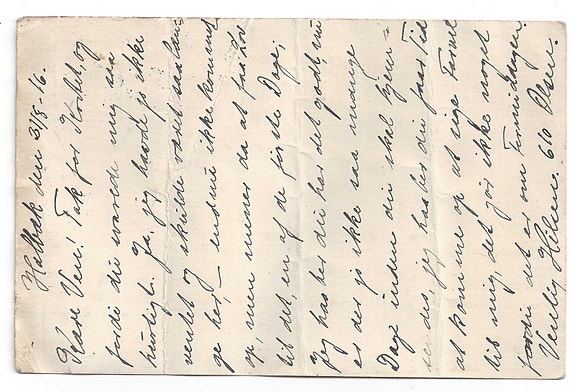 Holbæk den 31/8-16.
Kære Ven! Tak for Kortet, og
fordi du svarede mig saa
hurtigt. Ja, jeg havde jo ikke
ventet I skulde været saa læn-
ge her, – endnu ikke kommet
op, men mener da at faa Lov
til det, en af de første Dage;
Jeg haaber du har det godt, nu
er der jo ikke saa mange
Dage inden du skal hjem-
se des, jeg haaber du faar Tid
at komme op at sige Farvel
til mig, det gør ikke noget
fordi det er om Formiddagen.
Venlig Hilsen. 610 Olsen.